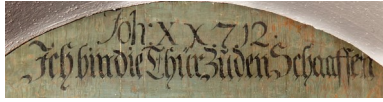 Joh: X X 7, 12.
Ich bin die Thür Zu den Schaaffen